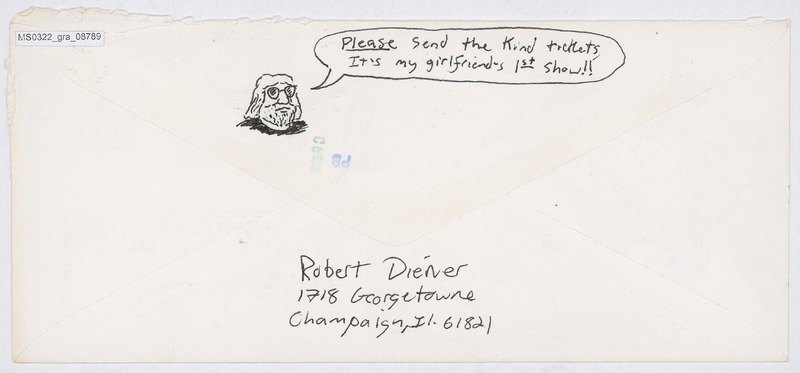 MS0322_gra_08789
Please send the kind tickets
It's my girlfriend's 1st show!!
Robert Diener
1718 Georgetowne
Champaign, Il. 61821